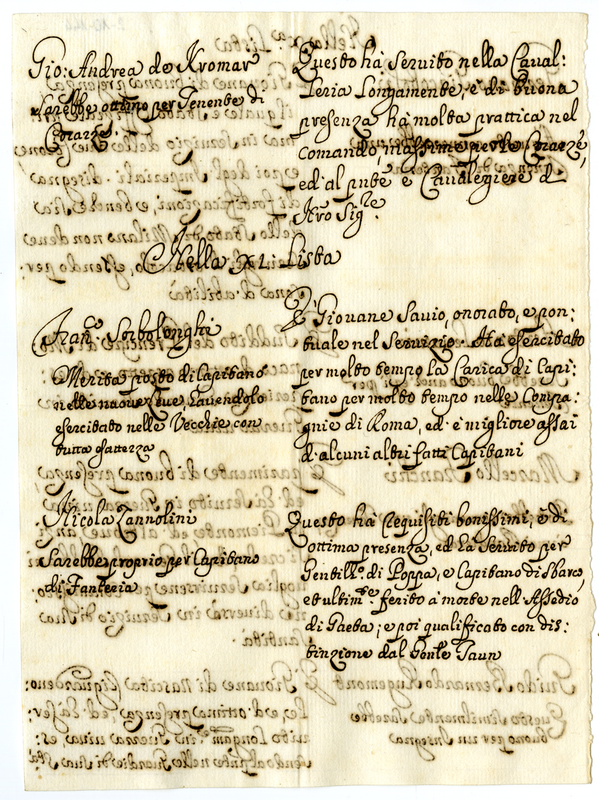 Gio: Andrea de Kromar
Sarebbe ottimo per Tenente di
Corazze.
Questo hà servito nella Caval:
leria Longamente, è di buona
presenza, hà molta prattica nel
comando, massime per le Corazze,
ed' al pnte è Cavalegiere d
Nro Sigre.
Nella XL: Lista
Franco. Sorbolonghi
Merita posto di Capitano
nelle nuove Leve, havendolo
esercitato nelle Vecchie con
tutta esattezza
È Giovane Savio, onorato, e pon:
tuale nel Servizio. Hà esercitato
per molto tempo la Carica di Capi:
tano per molto tempo nelle Compa:
gnie di Roma, ed' è migliore assai
d'alcuni altri fatti Capitani
Nicola Zannolini
Sarebbe proprio per Capitano
di Fanteria
Questo hà requisiti bonissimi, è di
ottima presenza, ed hà Servito per
Gentillo. di Poppa, e Capitano di Sbarco,
et ultimte. ferito à morte nell'Assedio
di Gaeta; e poi qualificato con dis:
tinzione dal Conte Taun